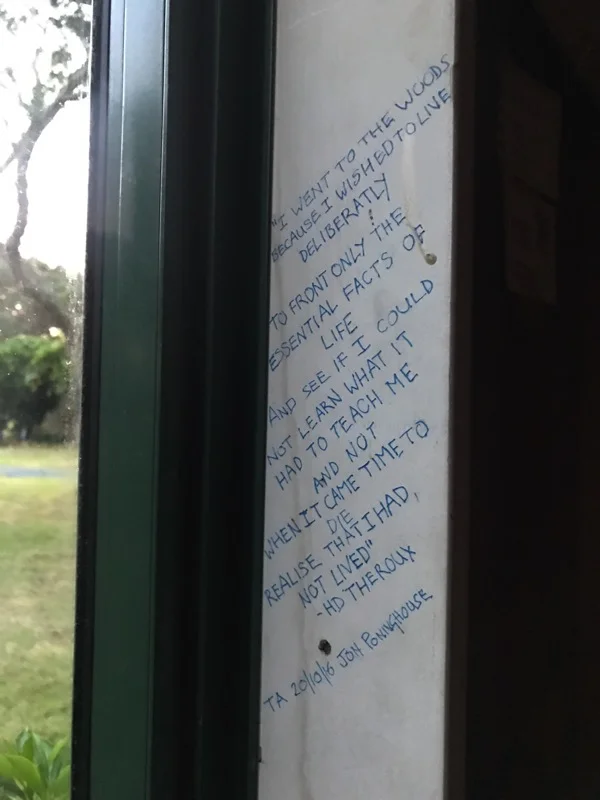 "I WENT TO THE WOODS
BECAUSE I WISHED TO LIVE
DELIBERATLY
TO FRONT ONLY THE
ESSENTIAL FACTS OF
LIFE
AND SEE IF I COULD
NOT LEARN WHAT IT
HAD TO TEACH ME
AND NOT
WHEN IT CAME TIME TO
DIE
REALISE THAT I HAD,
NOT LIVED"
-HD THEROUX
TA 20/10/16 JOH PONINGHOUSE